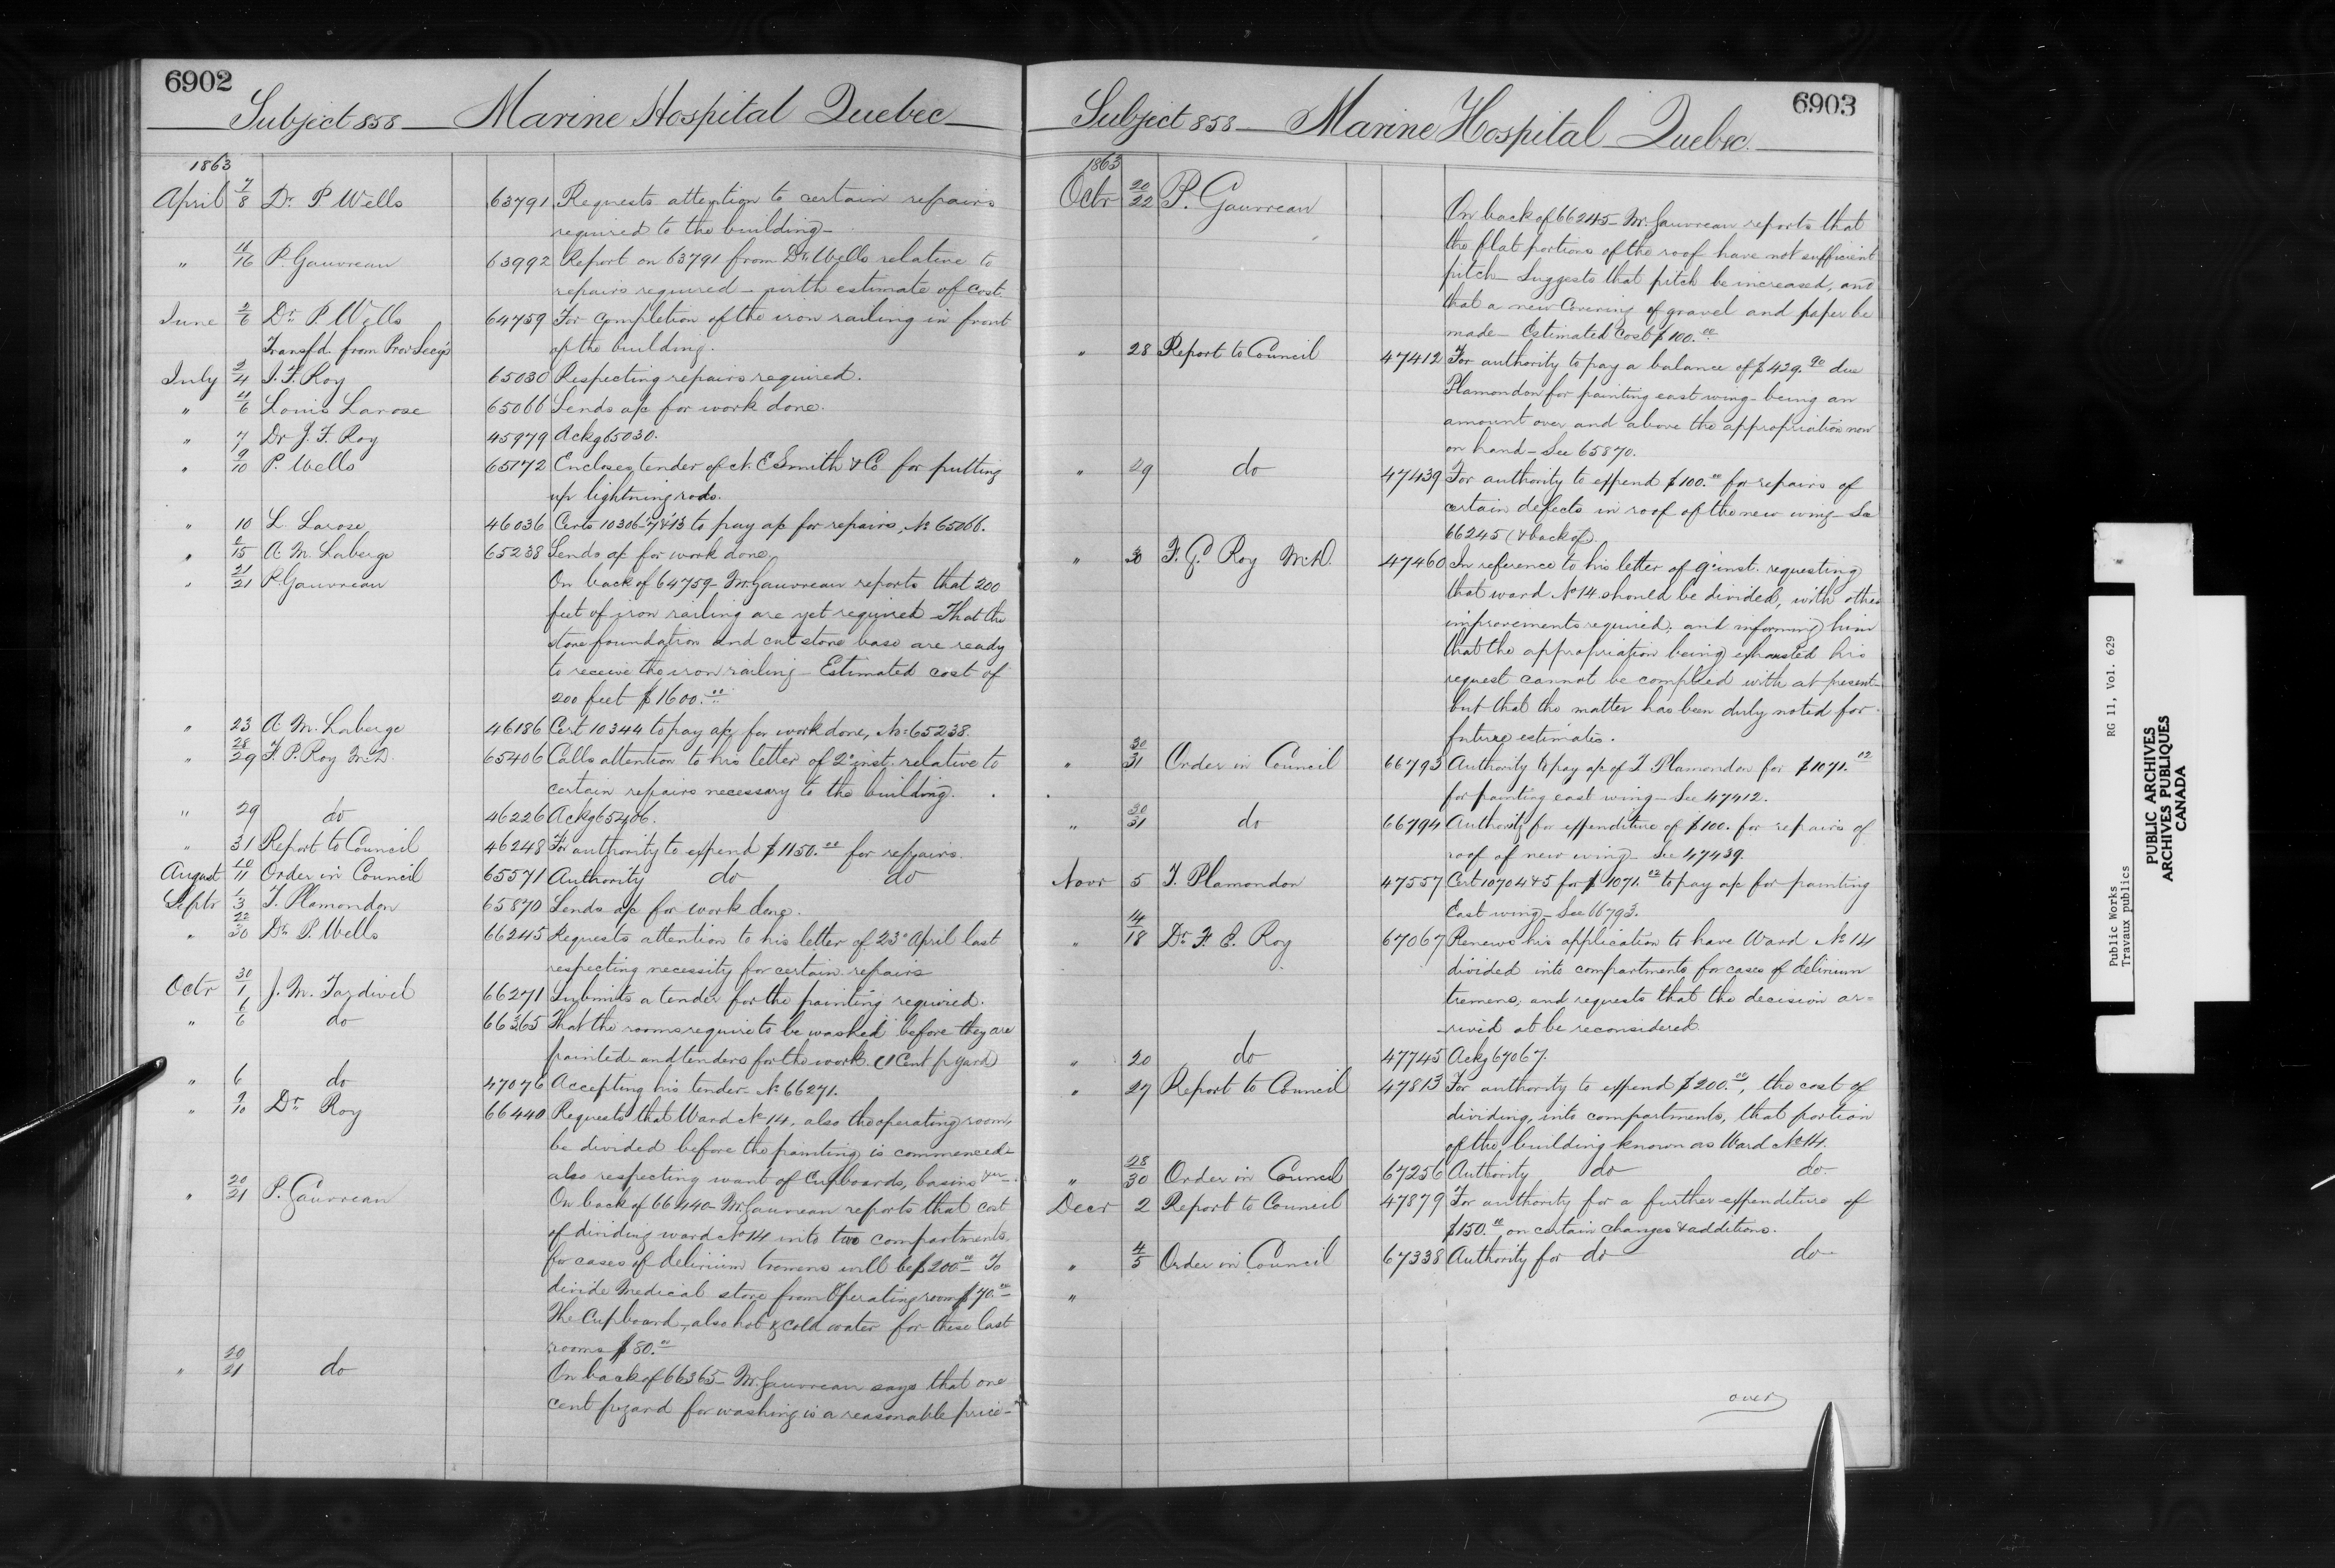 6902
Subject 858 — Marine Hospital Quebec
1863
April 7/8 Dr. P Wells 63791 Requests attention to certain repairs
required to the building —
" 11/16 P. Gauvreau 63992 Report on 63791 from Dr. Wells relative to
repairs required — with estimate of cost.
June 2/6 Dr. P. Wells 64759 For completion of the iron railing in front
Transfd. from Prov Secy's of the building.
July 2/4 J. F. Roy 65030 Respecting repairs required.
" 4/6 Louis Larose 65066 Sends a/c for work done.
" 7 Dr J. F. Roy 45979 Ackg 65030.
" 9/10 P. Wells 65172 Encloses tender of N. E Smith & Co for putting
up lightning rods.
" 10 L Larose 46036 Certs 10306-7 & 13 to pay a/c for repairs, No 65066.
" 6/15 A. M. Laberge 65238 Sends a/c for work done.
" 21/21 P. Gauvreau On back of 64759 — Mr. Gauvreau reports that 200
feet of iron railing are yet required — That the
stone foundation and cut stone base are ready
to receive the iron railing — Estimated cost of
200 feet $1600.00
" 23 A. M. Laberge 46186 Cert 10344 to pay a/c for work done, No 65238.
" 28/29 F. P. Roy M.D. 65406 Calls attention to his letter of 2d inst. relative to
certain repairs necessary to the building.
" 29 do 46226 Ackg 65406.
" 31 Report to Council 46248 For authority to expend $1150.00 for repairs.
August 10/11 Order in Council 65571 Authority do do
Septr 1/3 T. Plamondon 65870 Sends a/c for work done.
" 22/30 Dr. P. Wells 66245 Requests attention to his letter of 23d April last
respecting necessity for certain repairs
Octr 30/1 J. M. Tardivel 66271 Submits a tender for the painting required.
" 6/6 do 66365 That the rooms require to be washed before they are
painted — and tenders for the work. (1 Cent p yard)
" 6 do 47076 Accepting his tender — No 66271.
" 9/10 Dr. Roy 66440 Requests that Ward No 14, also the operating room,
be divided before the painting is commenced —
also respecting want of Cupboards, basins &c —
" 20/21 P. Gauvreau On back of 66440 — Mr. Gauvreau reports that cost
of dividing ward No 14 into two compartments
for cases of delirium tremens will be $200.00 To
divide Medical store from Operating room $70.00
The Cupboard, also hot & cold water for these last
rooms $80.00
" 20/21 do On back of 66365 — Mr. Gauvreau says that one
cent p yard for washing is a reasonable price —
6903
Subject 858 — Marine Hospital Quebec.
1863
Octr 20/22 P. Gauvreau On back of 66245 — Mr. Gauvreau reports that
the flat portions of the roof have not sufficient
pitch — Suggests that pitch be increased, and
that a new Covering of gravel and paper be
made — Estimated Cost $100.00
" 28 Report to Council 47412 For authority to pay a balance of $429.90 due
Plamondon for painting east wing — being an
amount over and above the appropriation now
on hand — See 65870.
" 29 do 47439 For authority to expend $100.00 for repairs of
certain defects in roof of the new wing — See
66245 (& back of).
" 30 F. E. Roy M.D. 47460 In reference to his letter of 9th inst. requesting
that ward No 14 should be divided, with other
improvements required; and informing him
that the appropriation being exhausted his
request cannot be complied with at present —
but that the matter has been duly noted for
future estimates.
" 30/31 Order in Council 66793 Authority to pay a/c of T Plamondon for $1071.12
for painting east wing — See 47412.
" 30/31 do 66794 Authority for expenditure of $100. for repairs of
roof of new wing — See 47439.
Novr 5 T. Plamondon 47557 Cert 10704 & 5 for $1071.12 to pay a/c for painting
East wing — See 66793.
" 14/18 Dr. F. E. Roy 67067 Renews his application to have Ward No 14
divided into compartments for cases of delirium
tremens, and requests that the decision ar=
rived at be reconsidered.
" 20 do 47745 Ackg 67067.
" 27 Report to Council 47813 For authority to expend $200.00, the cost of
dividing, into compartments, that portion
of the building known as Ward No 14.
" 28/30 Order in Council 67256 Authority do do.
Decr 2 Report to Council 47879 For authority for a further expenditure of
$150.00 on certain changes & additions.
" 4/5 Order in Council 67338 Authority for do do
"
over
Public Works RG 11, Vol. 629
Travaux publics
PUBLIC ARCHIVES
ARCHIVES PUBLIQUES
CANADA